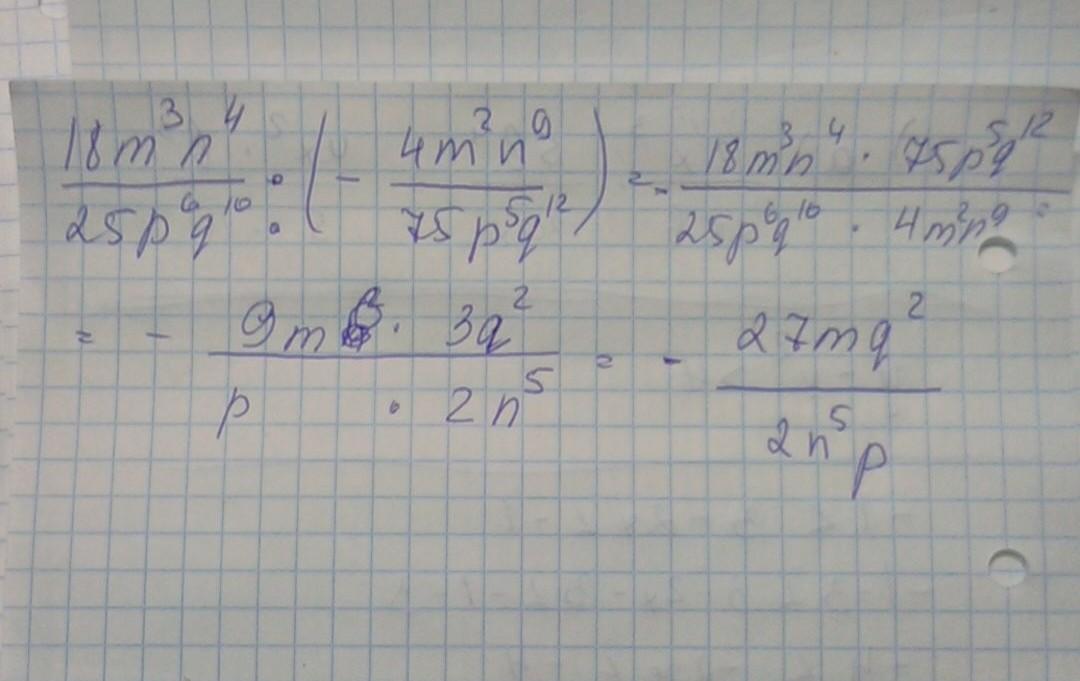 18m³n⁴/25p⁶q¹⁰ : (- 4m²n⁹/75p⁵q¹²) = - 18m³n⁴ · 75p⁵q¹²/25p⁶q¹⁰ · 4m²n⁹ =
= - 9m · 3q²/p · 2n⁵ = - 27mq²/2n⁵p